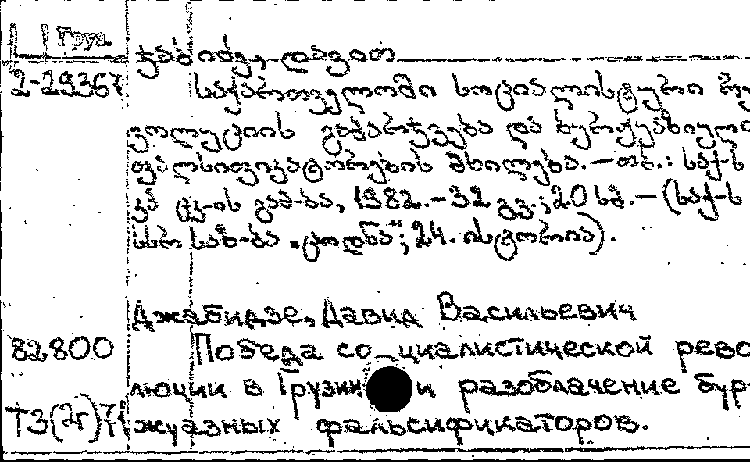 Груз.
ჯაბიძე, დავით
2-29367 საქართველოში სოციალისტური რე
ვოლუციის გამარჯვება და ბურჟუაზიული
ფალსიფიკატორების მხილება.–თბ.: საქ-ს
კპ ცკ-ის გამ-ბა, 1982.–32 გვ.; 20 სმ.–(საქ-ს
სსრ საზ-ბა „ცოდნა“; 24. ისტორია).
Джабидзе, Давид Васильевич
82800 Победа социалистической рево
люции в Грузии и разоблачение бур
ТЗ(2г)71 жуазных фальсификаторов.